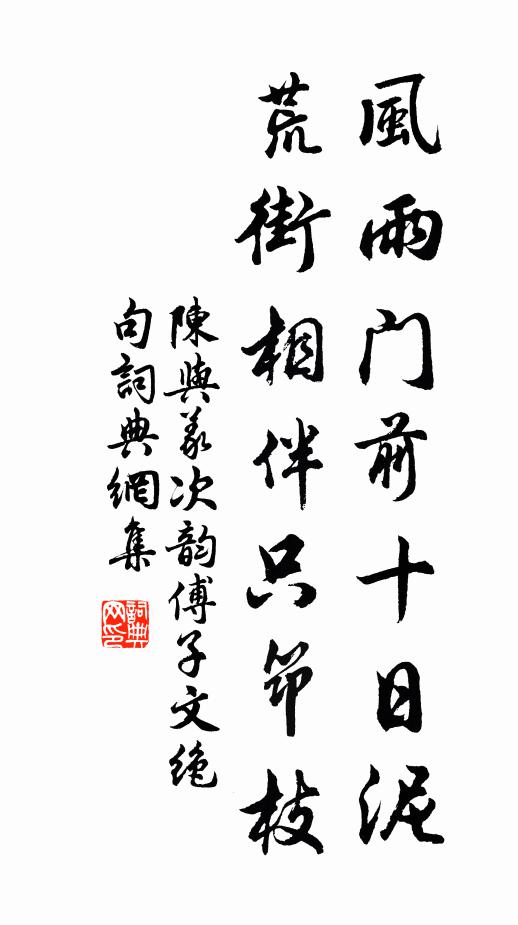 風雨门前十日泥
荒街相伴只笻枝
陳與義次韵傅子文绝
句詞典網集
詞典
网印